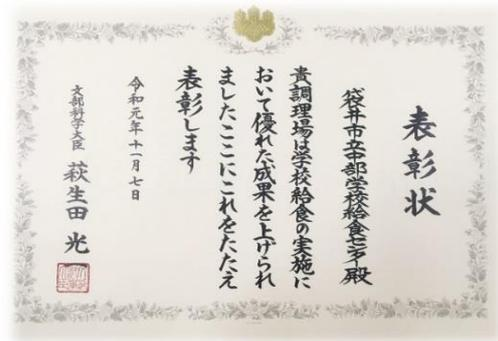 表彰状
袋井市立中部学校給食センター殿
貴調理場は学校給食の実施に
おいて優れた成果を上げられ
ましたここにこれをたたえ
表彰します
令和元年十一月七日
文部科学大臣 萩生田光一